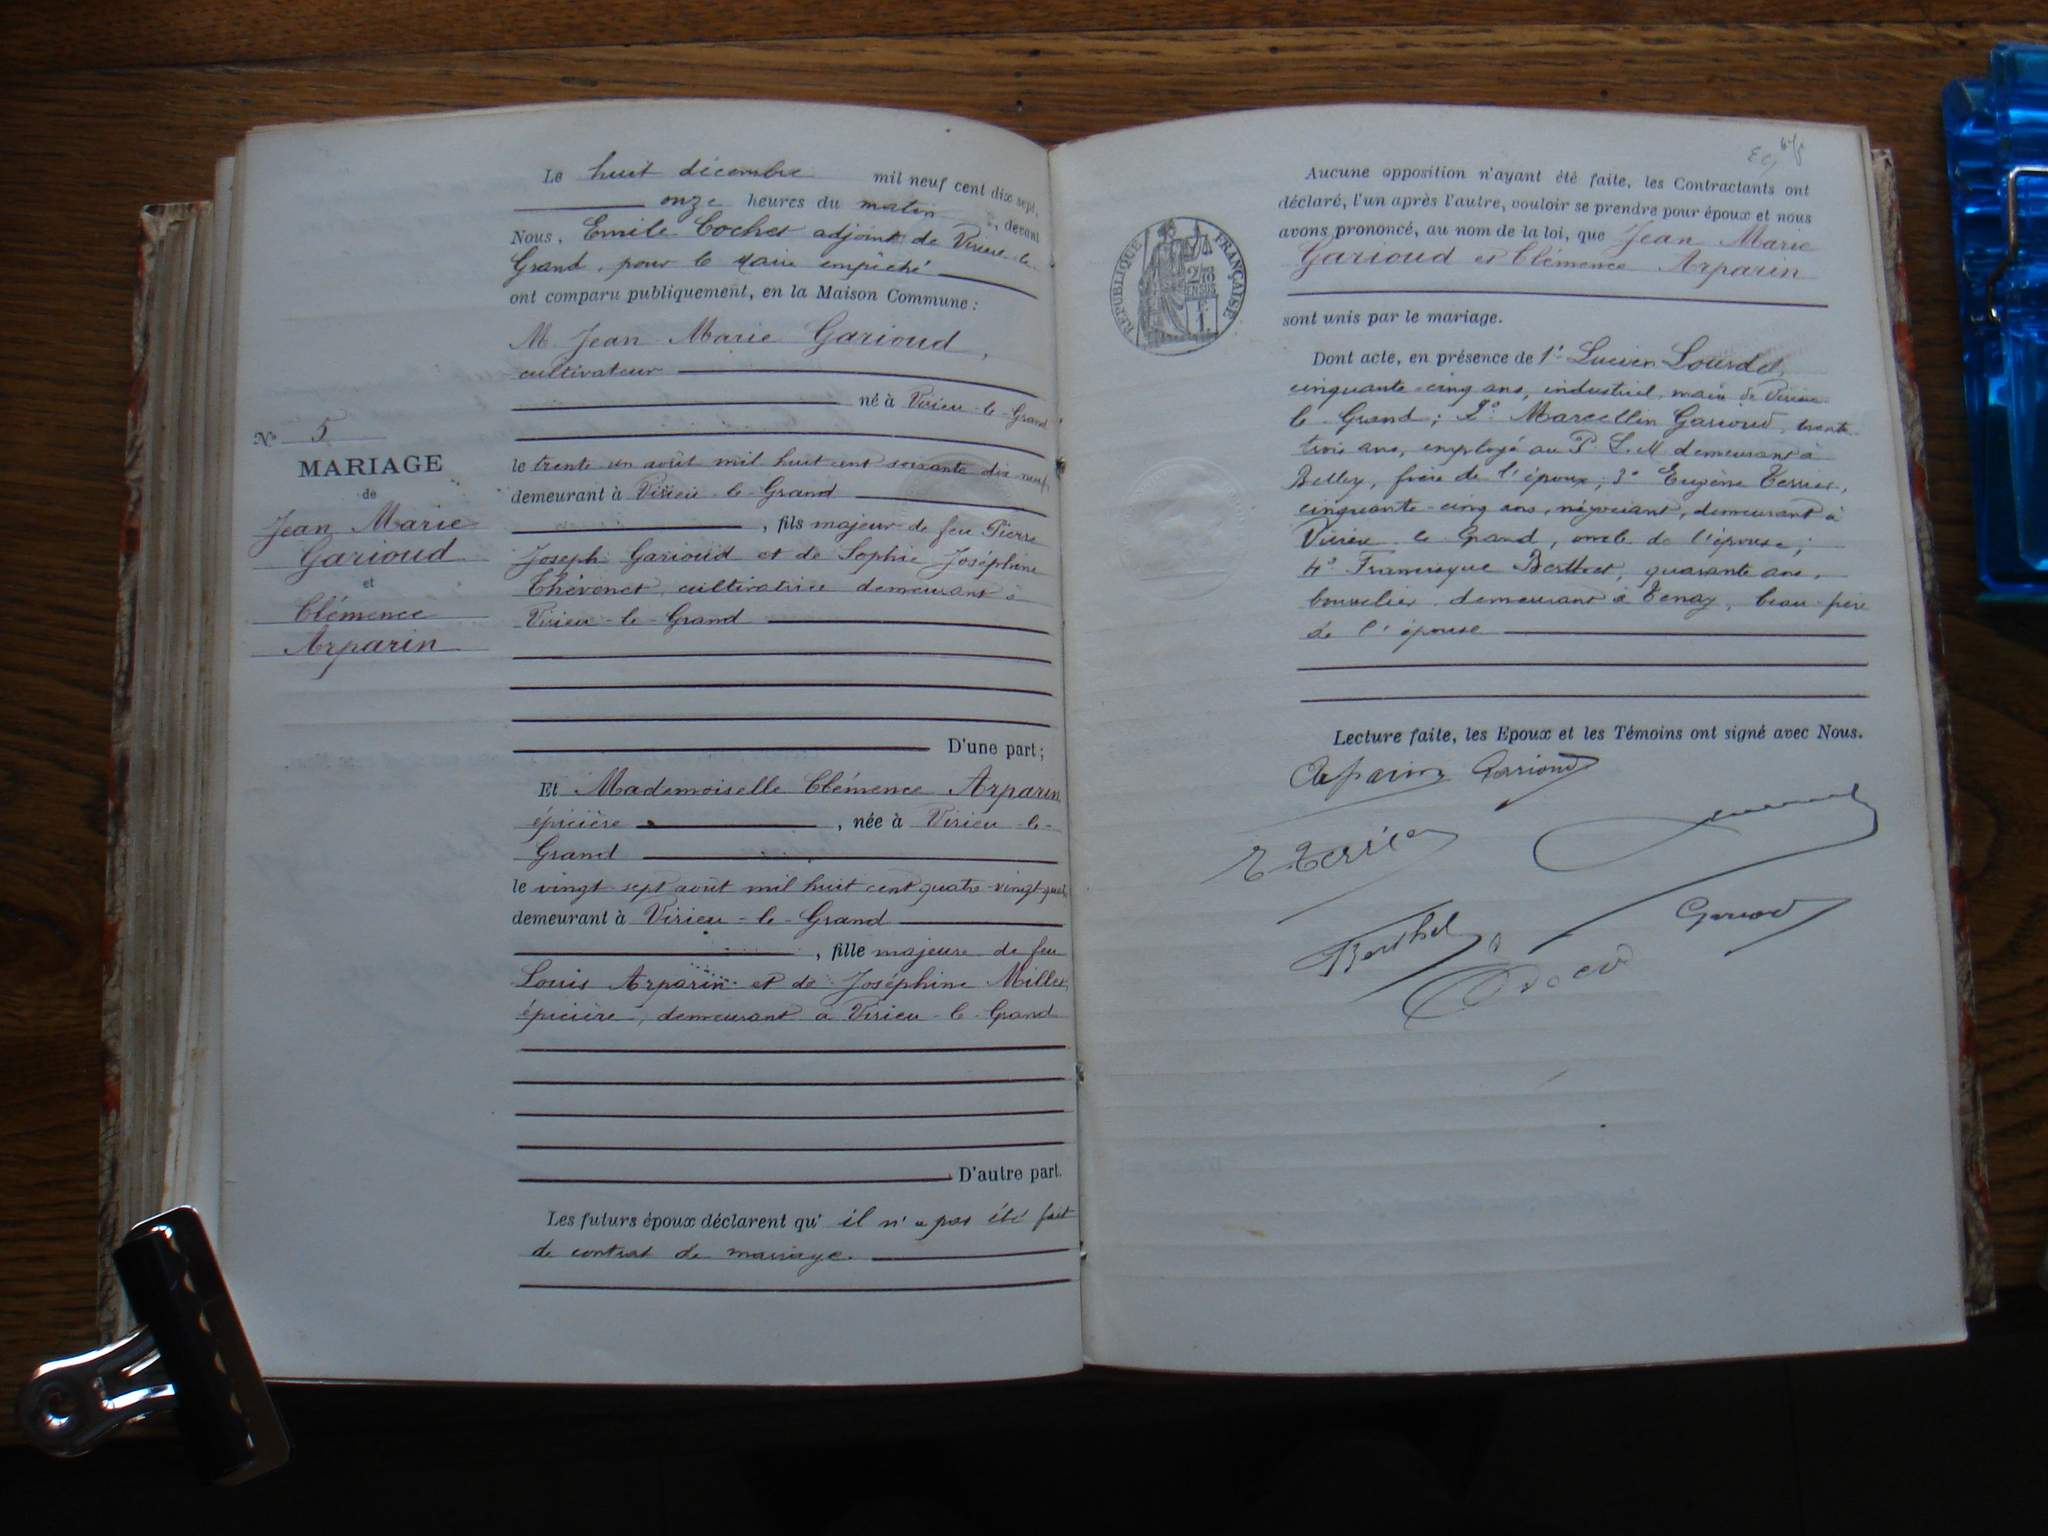 Le huit décembre mil neuf cent dix sept,
onze heures du matin, devant
Nous, Emile Cochet adjoint de Virieu-le-
Grand, pour le Maire empêché
ont comparu publiquement, en la Maison Commune :
M Jean Marie Garioud,
cultivateur
né à Virieu-le-Grand
le trente un août mil huit cent soixante dix-neuf,
demeurant à Virieu-le-Grand
, fils majeur de feu Pierre
Joseph Garioud et de Sophie Joséphine
Thévenet, cultivatrice demeurant à
Virieu-le-Grand
D'une part ;
Et Mademoiselle Clémence Arparin,
épicière, née à Virieu-le-
Grand
le vingt-sept août mil huit cent quatre-vingt
demeurant à Virieu-le-Grand
, fille majeure de feu
Louis Arparin et de Joséphine Millet,
épicière, demeurant à Virieu-le-Grand
D'autre part.
Les futurs époux déclarent qu'il n'a pas été fait
de contrat de mariage.
N° 5
MARIAGE
de
Jean Marie
Garioud
et
Clémence
Arparin
Aucune opposition n'ayant été faite, les Contractants ont
déclaré, l'un après l'autre, vouloir se prendre pour époux et nous
avons prononcé, au nom de la loi, que Jean Marie
Garioud et Clémence Arparin
sont unis par le mariage.
RÉPUBLIQUE FRANÇAISE
Dont acte, en présence de 1° Lucien Lourdel,
cinquante-cinq ans, industriel, maire de Virieu-
le-Grand ; 2° Marcellin Garioud, trente-
trois ans, employé au P. L. M demeurant à
Belley, frère de l'époux ; 3° Eugène Terrier,
cinquante-cinq ans, négociant, demeurant à
Virieu-le-Grand, oncle de l'épouse ;
4° Francisque Berthet, quarante ans,
bourrelier, demeurant à Tenay, beau-frère
de l'épouse
Lecture faite, les Epoux et les Témoins ont signé avec Nous.
Arparin Garioud
E. Terrier
Berthet
Garioud